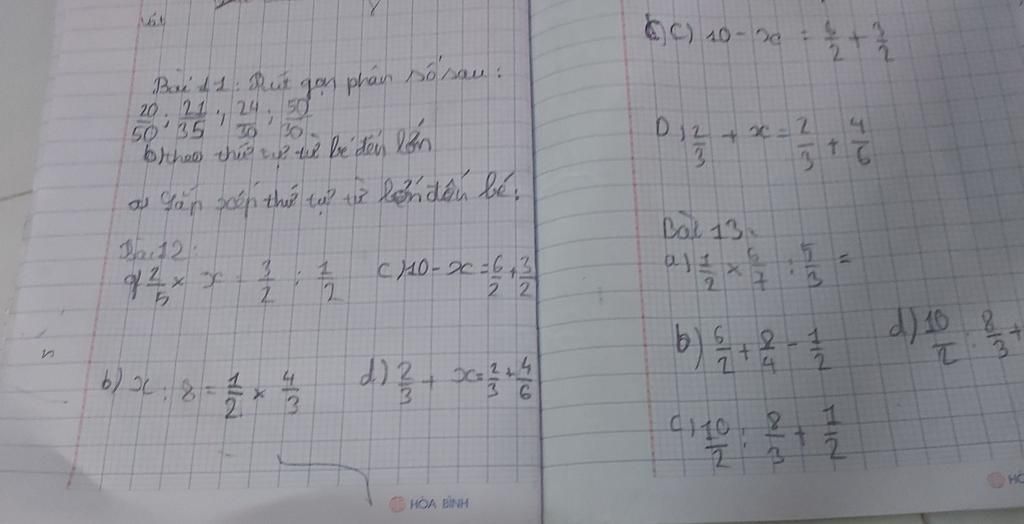 Bài 11: Rút gọn phân số sau:
20/50; 21/35; 24/30; 50/30
b) theo thứ tự từ bé đến lớn
a) sắp xếp thứ tự từ lớn đến bé.
Bài 12:
a) 2/5 × x = 3/2 : 1/2 c) 10 - x = 6/2 + 3/2
b) x : 8 = 1/2 × 4/3 d) 2/3 + x = 2/3 + 4/6
HÒA BÌNH
c) 10 - x = 6/2 + 3/2
D) 2/3 + x = 2/3 + 4/6
Bài 13:
a) 1/2 × 6/7 : 5/3 =
b) 6/2 + 8/4 - 1/2 d) 10/2 : 8/3 +
c) 10/2 : 8/3 + 1/2